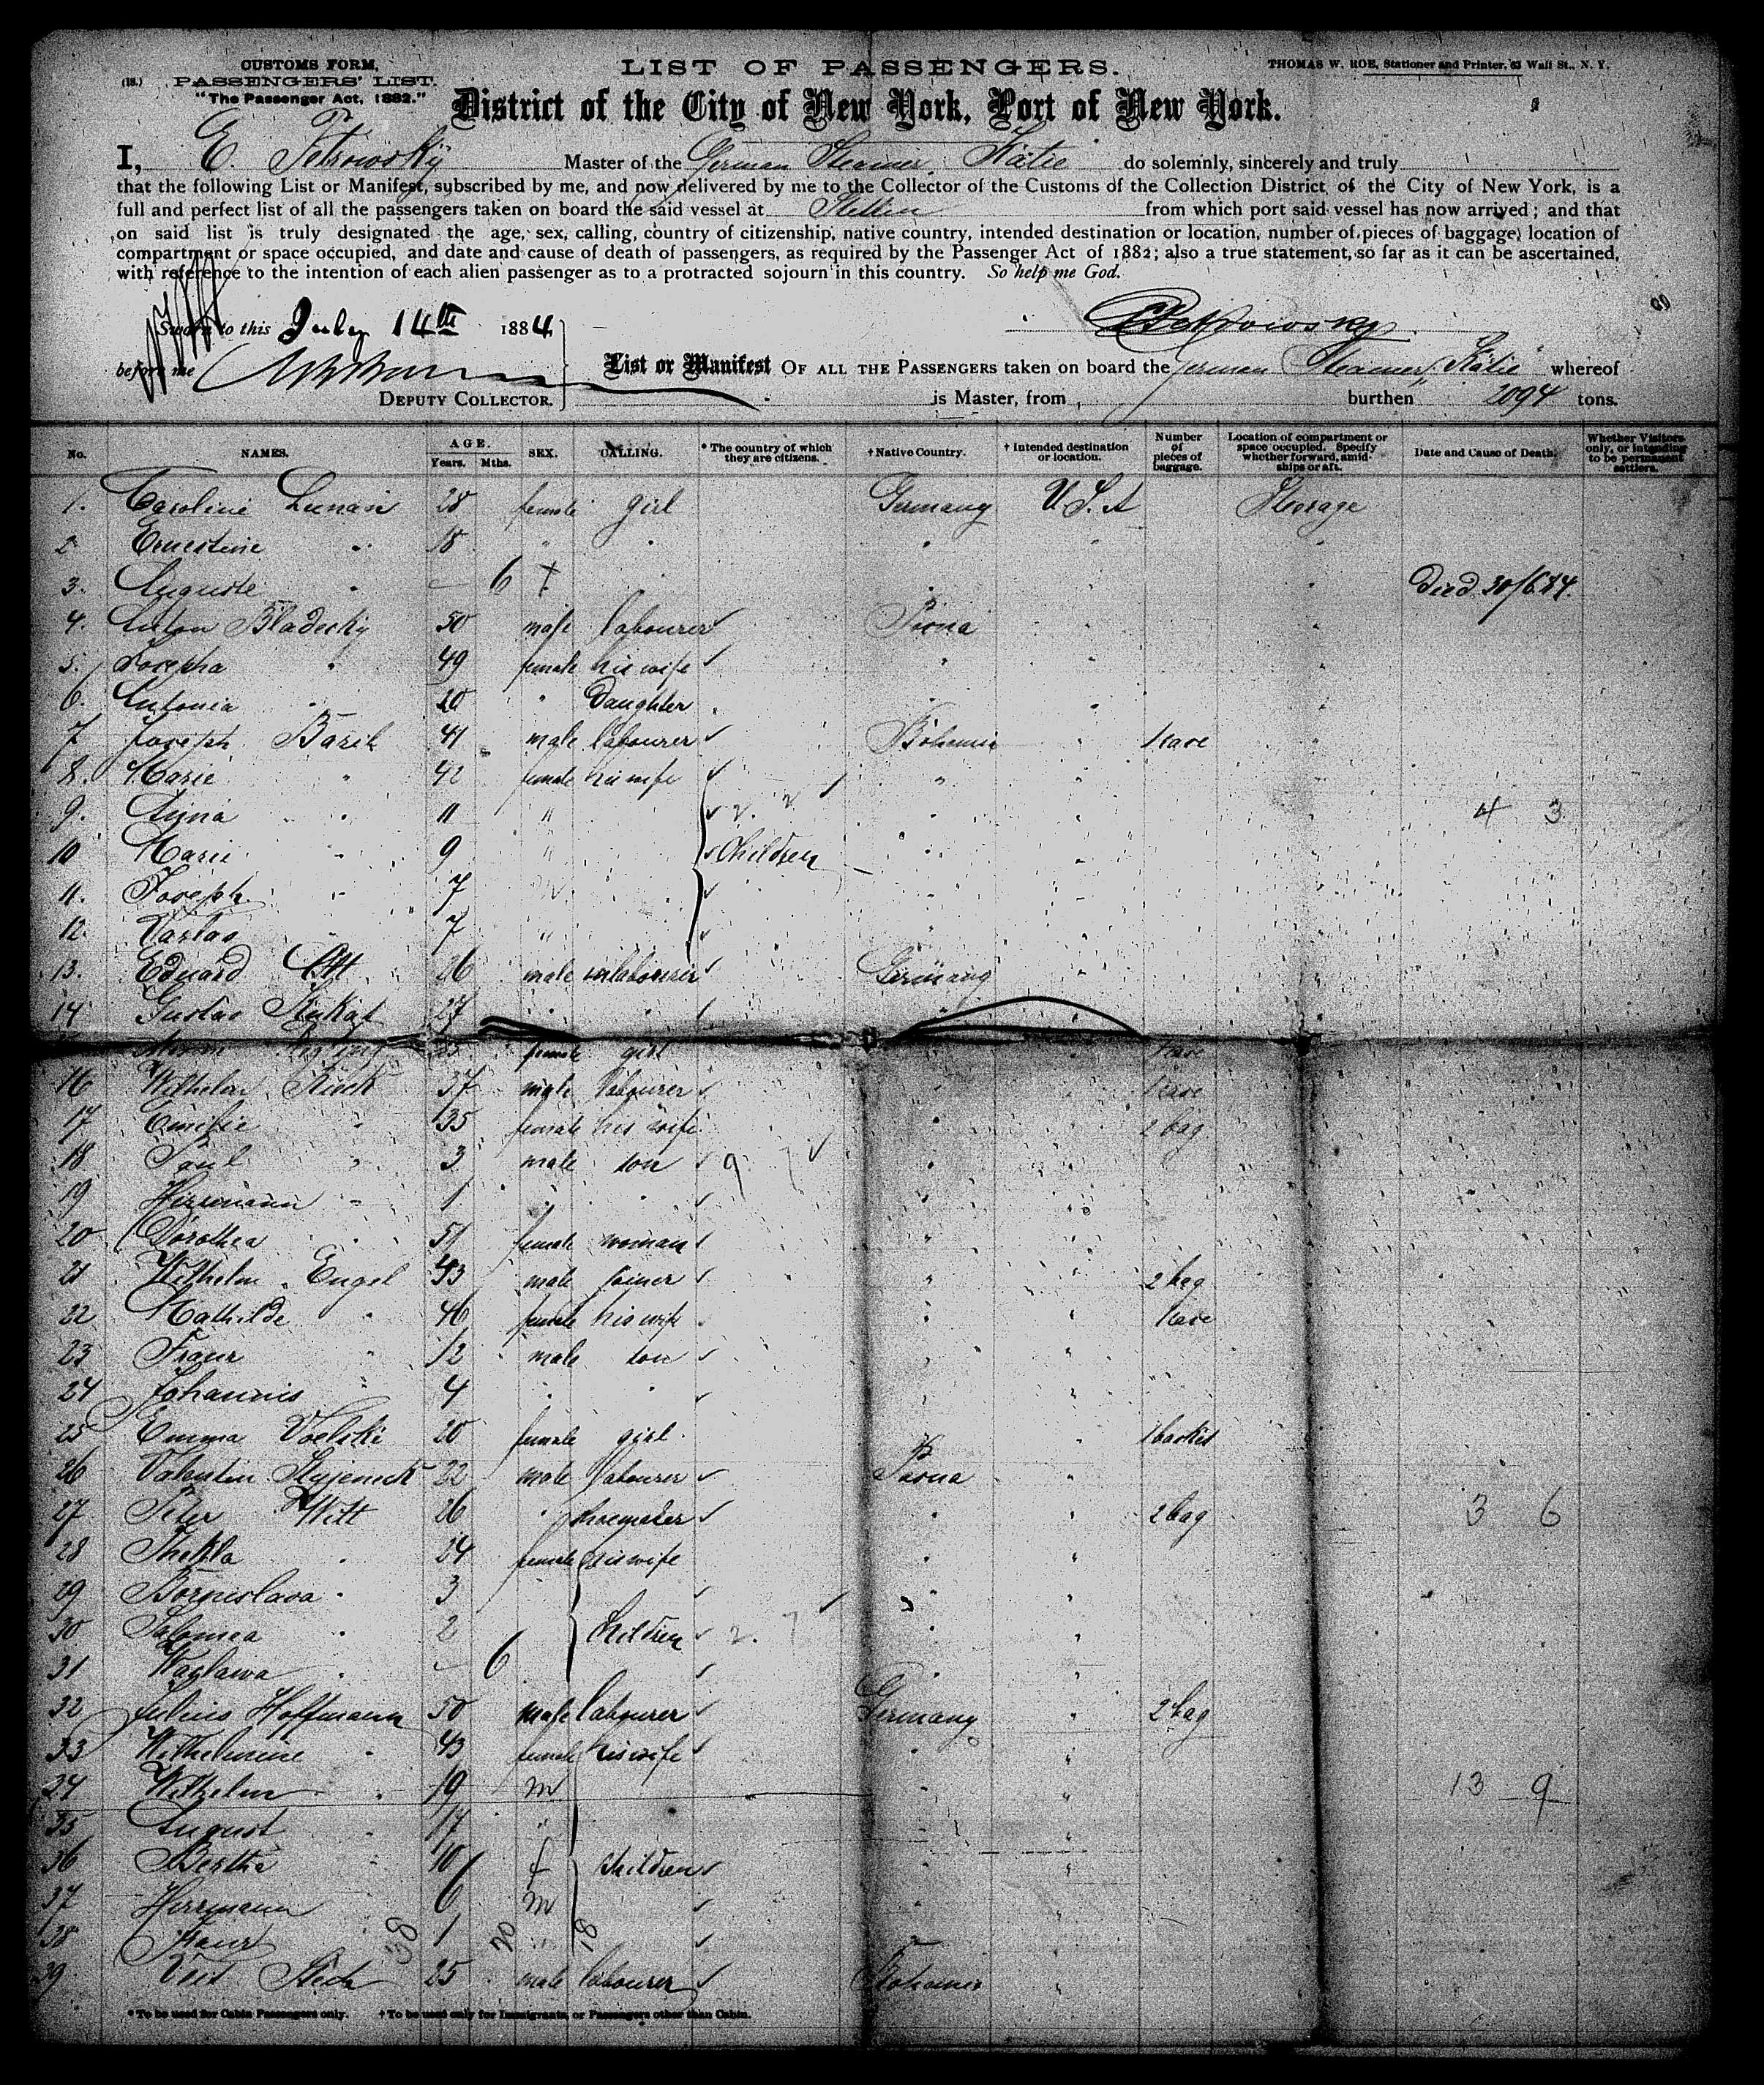 CUSTOMS FORM,
(18.) PASSENGERS' LIST.
"The Passenger Act, 1882."
LIST OF PASSENGERS.
THOMAS W. ROE, Stationer and Printer, 63 Wall St., N. Y.
District of the City of New York, Port of New York.
I, E. Petrowsky Master of the German Steamer Katie do solemnly, sincerely and truly
that the following List or Manifest, subscribed by me, and now delivered by me to the Collector of the Customs of the Collection District of the City of New York, is a
full and perfect list of all the passengers taken on board the said vessel at Stettin from which port said vessel has now arrived; and that
on said list is truly designated the age, sex, calling, country of citizenship, native country, intended destination or location, number of pieces of baggage, location of
compartment or space occupied, and date and cause of death of passengers, as required by the Passenger Act of 1882; also a true statement, so far as it can be ascertained,
with reference to the intention of each alien passenger as to a protracted sojourn in this country. So help me God.
Sworn to this July 14th 1884 Petrowsky
before me
List or Manifest OF ALL THE PASSENGERS taken on board the german Steamer "Katie" whereof
DEPUTY COLLECTOR. is Master, from burthen 2094 tons.
No. NAMES. AGE. Years. Mths. SEX. CALLING. * The country of which they are citizens. † Native Country. † Intended destination or location. Number of pieces of baggage. Location of compartment or space occupied. Specify whether forward, amidships or aft. Date and Cause of Death. Whether Visitors only, or intending to be permanent settlers.
1. Caroline 28 female girl Germany U.S.A Steerage
2 Ernestine " 18 " " " " "
3. Auguste " — 6 f " " " Died 30/6.84.
4. Anton Bladecky 50 male labourer " "
5. Josepha " 49 female his wife " " "
6. Antonia " 20 " Daughter " " "
7 Joseph 41 male labourer Bohemia " 1 case "
8. Marie " 42 female his wife " " "
9. Anna " 11 " " " 4 3
10 Marie " 9 " Children " "
11. Joseph " 7 m " "
12. " 7 " " "
13. Eduard Ott 26 male labourer Germany
14 Gustav 27 " "
female girl " 1 case
16 Wilhelm 37 male labourer " " 1 case
17 Emilie " 35 female his wife " " 2 bag
18 Paul " 3 male son 9 " "
19 Herrmann " 1 " " " "
20 Dorothea " 51 female woman " "
21 Wilhelm Engel 43 male joiner " " 2 bag
22 Mathilde " 46 female his wife " " 1 case
23 Franz " 12 male son " "
24 Johannis " 4 " " " "
25 Emma 20 female girl " " 1 basket
26 22 male labourer "
27 Peter Witt 26 " shoemaker " " 2 bag 3 6
28 Thekla " 24 female his wife " "
29 " 3 " "
30 Salomea " 2 Children 2. 7 "
31 " – 6 " "
32 Julius Hoffmann 50 male labourer Germany " 2 bag
33 Wilhelmine " 43 female his wife " "
34 Wilhelm " 19 m " " 13 9
35 August " 17 " " "
36 Bertha " 10 f children " "
37 Herrmann 6 m "
38 Franz 1 "
38 20 18
39 Veit 25 male labourer Bohemia "
* To be used for Cabin Passengers only. † To be used only for Immigrants, or Passengers other than Cabin.